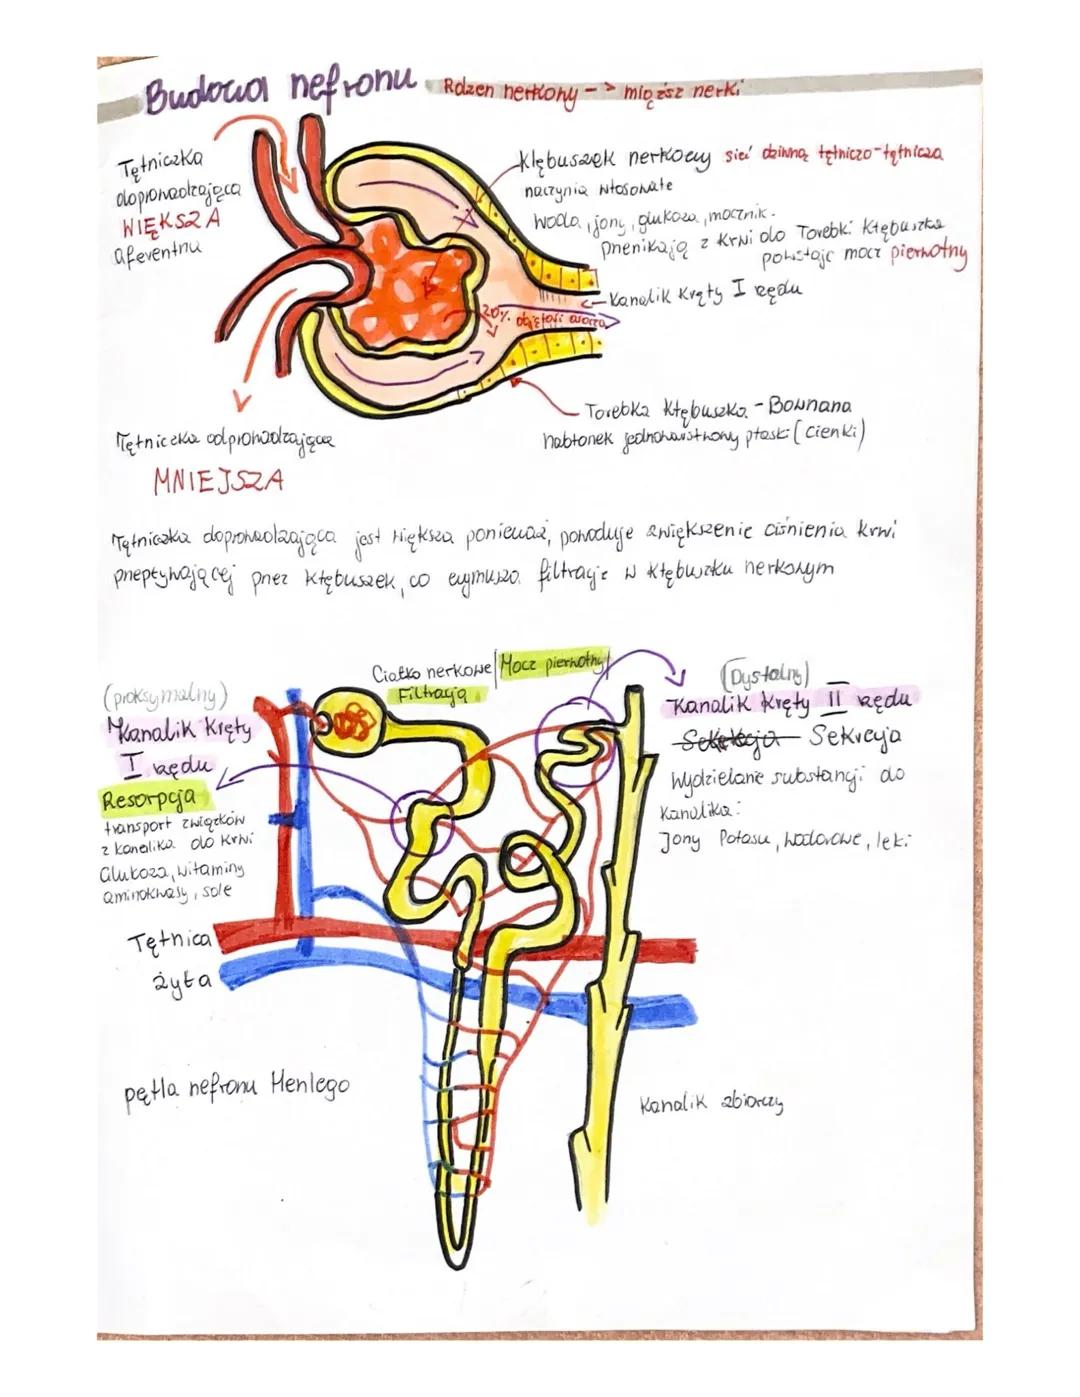 Budowa nefronu Rdzen nerkowy -> miąższ nerki
Tętniczka
doprowadzająca
WIĘKSZA
aferentna
Kłębuszek nerkowy sieć dziwna tętniczo-tętnicza
naczynia włosowate
woda, jony, glukoza, mocznik.
przenikają z krwi do Torebki Kłębuszka
powstaje mocz pierwotny
Kanalik Kręty I rzędu
20% objętości osocza
Torebka Kłębuszka - Bowmana
nabłonek jednowarstwowy płaski (cienki)
Tętniczka odprowadzająca
MNIEJSZA
Tętniczka doprowadzająca jest większa ponieważ, powoduje zwiększenie ciśnienia krwi
przepływającej przez kłębuszek, co wymusza filtrację w kłębuszku nerkowym
Ciałko nerkowe Mocz pierwotny
Filtracja
(proksymalny)
Kanalik Kręty
I rzędu
Resorpcja
transport związków
z kanalika do krwi
Glukoza, witaminy
aminokwasy, sole
Tętnica
żyła
(Dystalny)
Kanalik Kręty II rzędu
Sekrecja
Wydzielanie substancji do
Kanalika:
Jony Potasu, wodorowe, leki
pętla nefronu Henlego
Kanalik zbiorczy